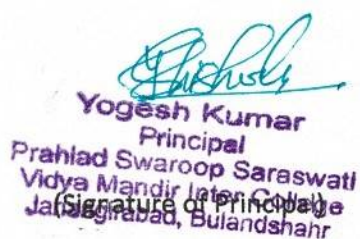 Yogesh Kumar
Principal
Prahlad Swaroop Saraswati
Vidya Mandir Inter College
Jahangirabad, Bulandshahr
(Signature of Principal)